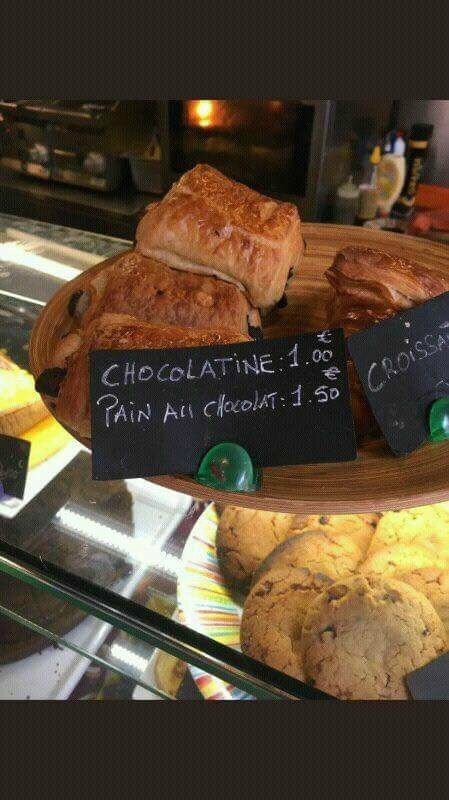 CHOCOLATINE: 1.00 €
PAIN AU CHOCOLAT: 1.50 €